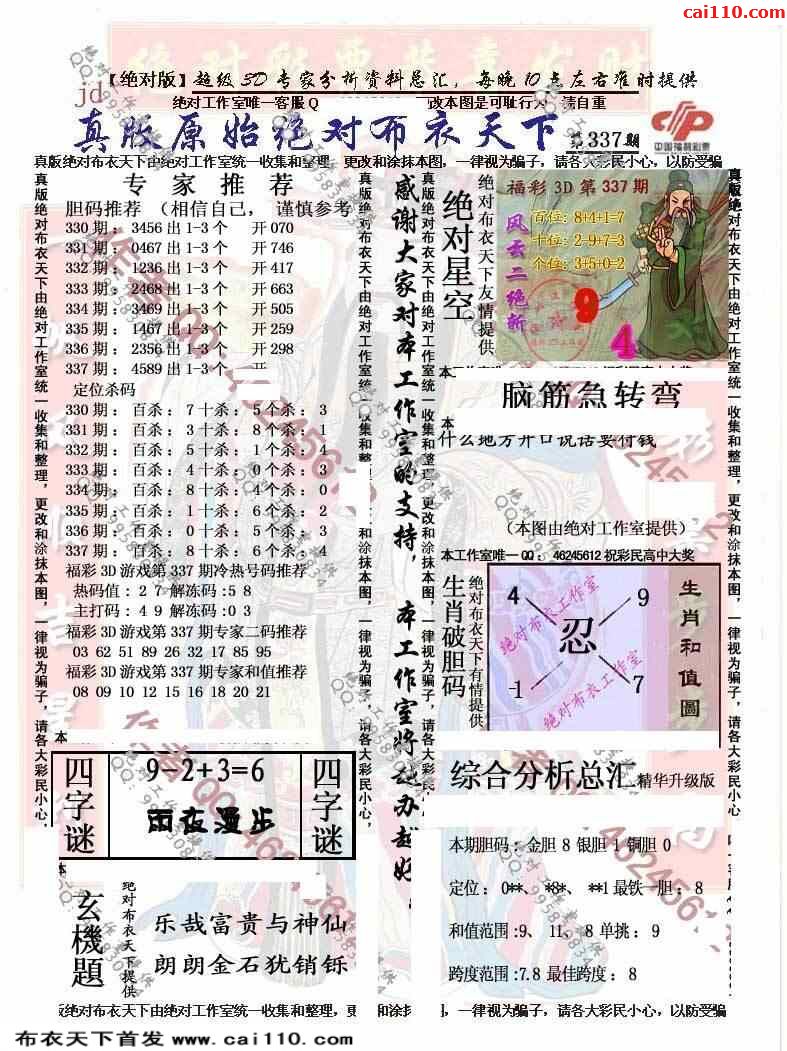 cai110.com
【绝对版】超级3D专家分析资料总汇，每晚10点左右准时提供
jd
绝对工作室唯一客服Q
改本图是可耻行为 请自重
真版原始绝对布衣天下
第337期
中国福利彩票
真版绝对布衣天下由绝对工作室统一收集和整理，更改和涂抹本图，一律视为骗子，请各大彩民小心，以防受骗
专家推荐
胆码推荐 （相信自己， 谨慎参考
330期：3456出1-3个 开070
331期：0467出1-3个 开746
332期：1236出1-3个 开417
333期：2468出1-3个 开663
334期：3469出1-3个 开505
335期：1467出1-3个 开259
336期：2356出1-3个 开298
337期：4589出1-3个 开
定位杀码
330期：百杀：7十杀：5个杀：3
331期：百杀：3十杀：8个杀：1
332期：百杀：5十杀：1个杀：4
333期：百杀：4十杀：0个杀：3
334期：百杀：8十杀：4个杀：0
335期：百杀：1十杀：6个杀：2
336期：百杀：0十杀：5个杀：3
337期：百杀：8十杀：6个杀：4
福彩3D游戏第337期冷热号码推荐
热码值：2 7 解冻码:5 8
主打码：4 9 解冻码:0 3
福彩3D游戏第337期专家二码推荐
03 62 51 89 26 32 17 85 95
福彩3D游戏第337期专家和值推荐
08 09 10 12 15 16 18 20 21
真版绝对布衣天下由绝对工作室统一收集和整理，更改和涂抹本图，一律视为骗子，请各大彩民小心，
感谢大家对本工作室的支持，本工作室将越办越好
绝对星空
绝对布衣天下友情提供
福彩3D第337期
风云二绝斩
百位：8+4+1=7
十位：2-9+7=3
个位：3+5+0=2
9
4
脑筋急转弯
什么地方开口说话要付钱
（本图由绝对工作室提供）
本工作室唯一QQ：46245612祝彩民高中大奖
生肖破胆码
绝对布衣天下有情提供
4
9
忍
1
7
绝对布衣工作室
绝对布衣工作室
生肖和值圖
四字谜
9-2+3=6
雨夜漫步
四字谜
玄機題
绝对布衣天下提供
乐哉富贵与神仙
朗朗金石犹销铄
综合分析总汇 精华升级版
本期胆码：金胆 8 银胆 1 铜胆 0
定位：0**、*8*、**1最铁一胆：8
和值范围:9、11、8 单挑：9
跨度范围:7.8 最佳跨度：8
版绝对布衣天下由绝对工作室统一收集和整理，更
和涂抹
，一律视为骗子，请各大彩民小心，以防受骗
布衣天下首发 www.cai110.com